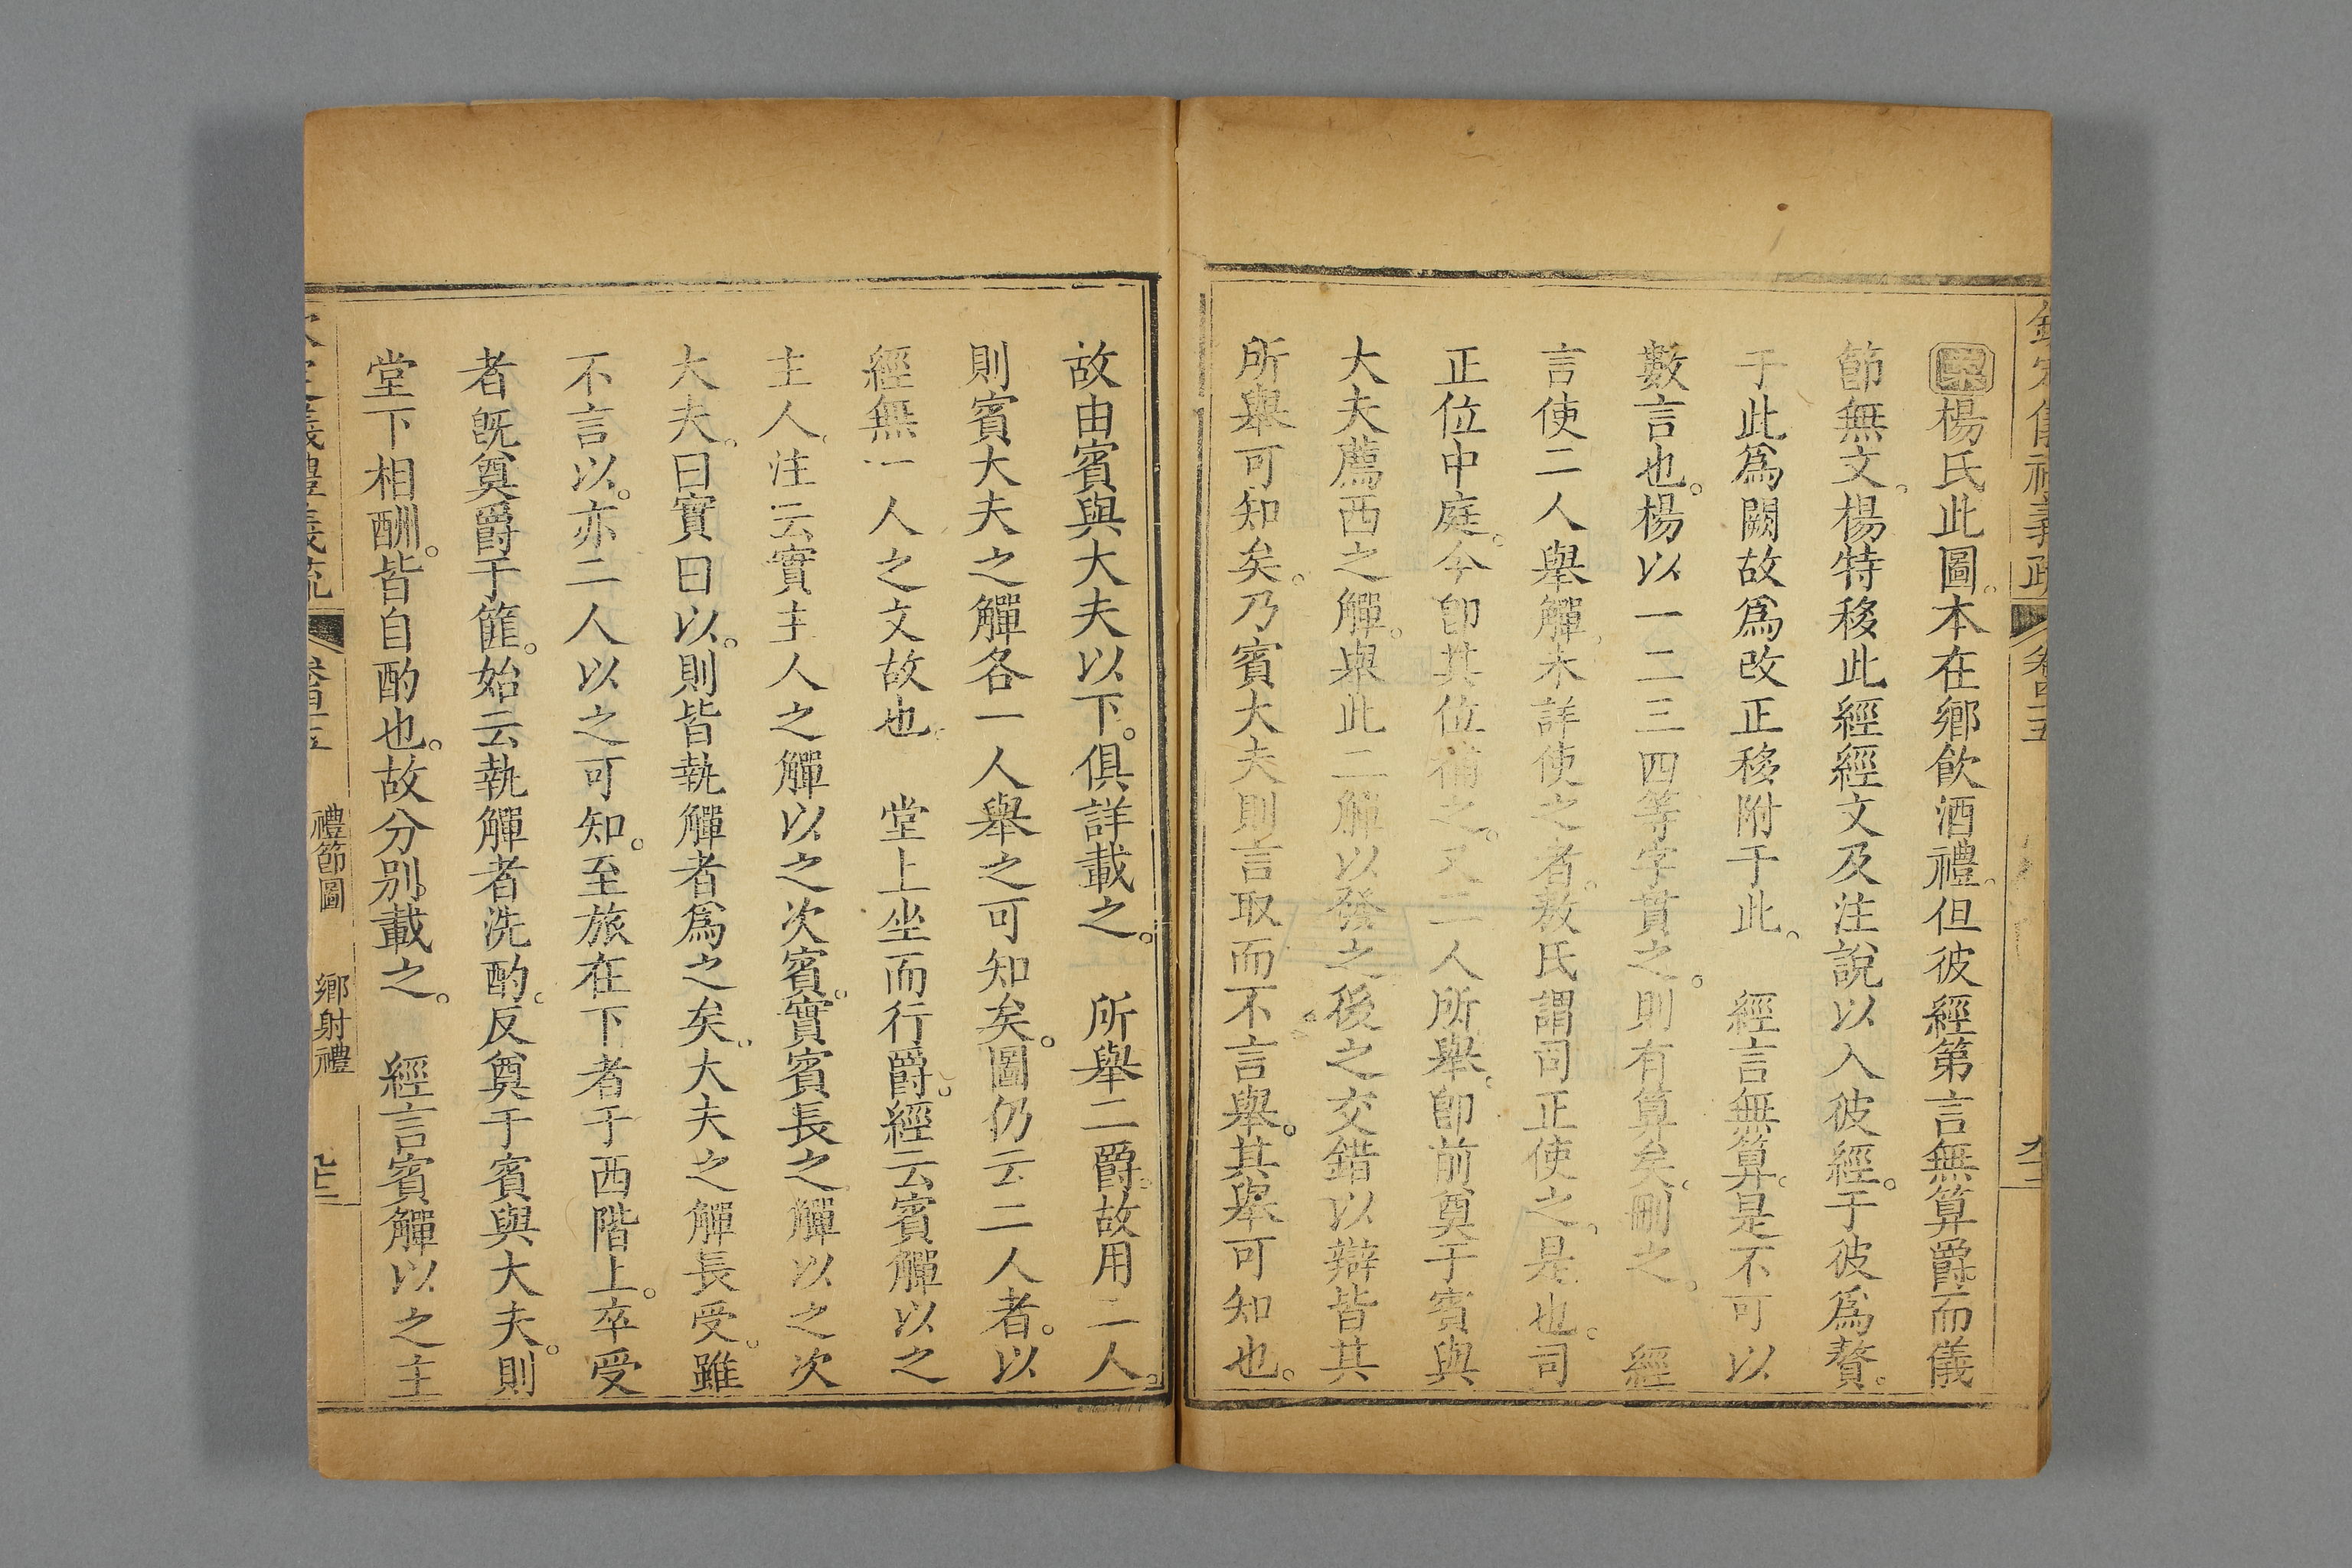 案楊氏此圖。本在鄉飲酒禮。但彼經第言無算爵而儀
節無文。楊特移此經經文及注說以入彼經。于彼爲贅。
于此爲闕故爲改正移附于此。　經言無算。是不可以
數言也。楊以一二三四等字貫之。則有算矣。刪之。　經
言使二人舉觶。未詳使之者。敖氏謂司正使之。是也。司
正位中庭。今卽其位補之。又二人所舉。卽前奠于賓與
大夫薦西之觶。舉此二觶以發之後之交錯以辯皆其
所舉可知矣。乃賓大夫則言取而不言舉。其舉可知也。
故由賓與大夫以下。俱詳載之。　所舉二爵。故用二人。
則賓大夫之觶各一人舉之可知矣。圖仍云二人者。以
經無一人之文故也。　堂上坐而行爵。經云賓觶以之
主人。注云實主人之觶以之次賓。實賓長之觶以之次
大夫。曰實曰以。則皆執觶者爲之矣。大夫之觶長受。雖
不言以。亦二人以之可知。至旅在下者于西階上。卒受
者旣奠爵于篚。始云執觶者洗酌。反奠于賓與大夫。則
堂下相酬。皆自酌也。故分別載之。　經言賓觶以之主
禮節圖　鄉射禮